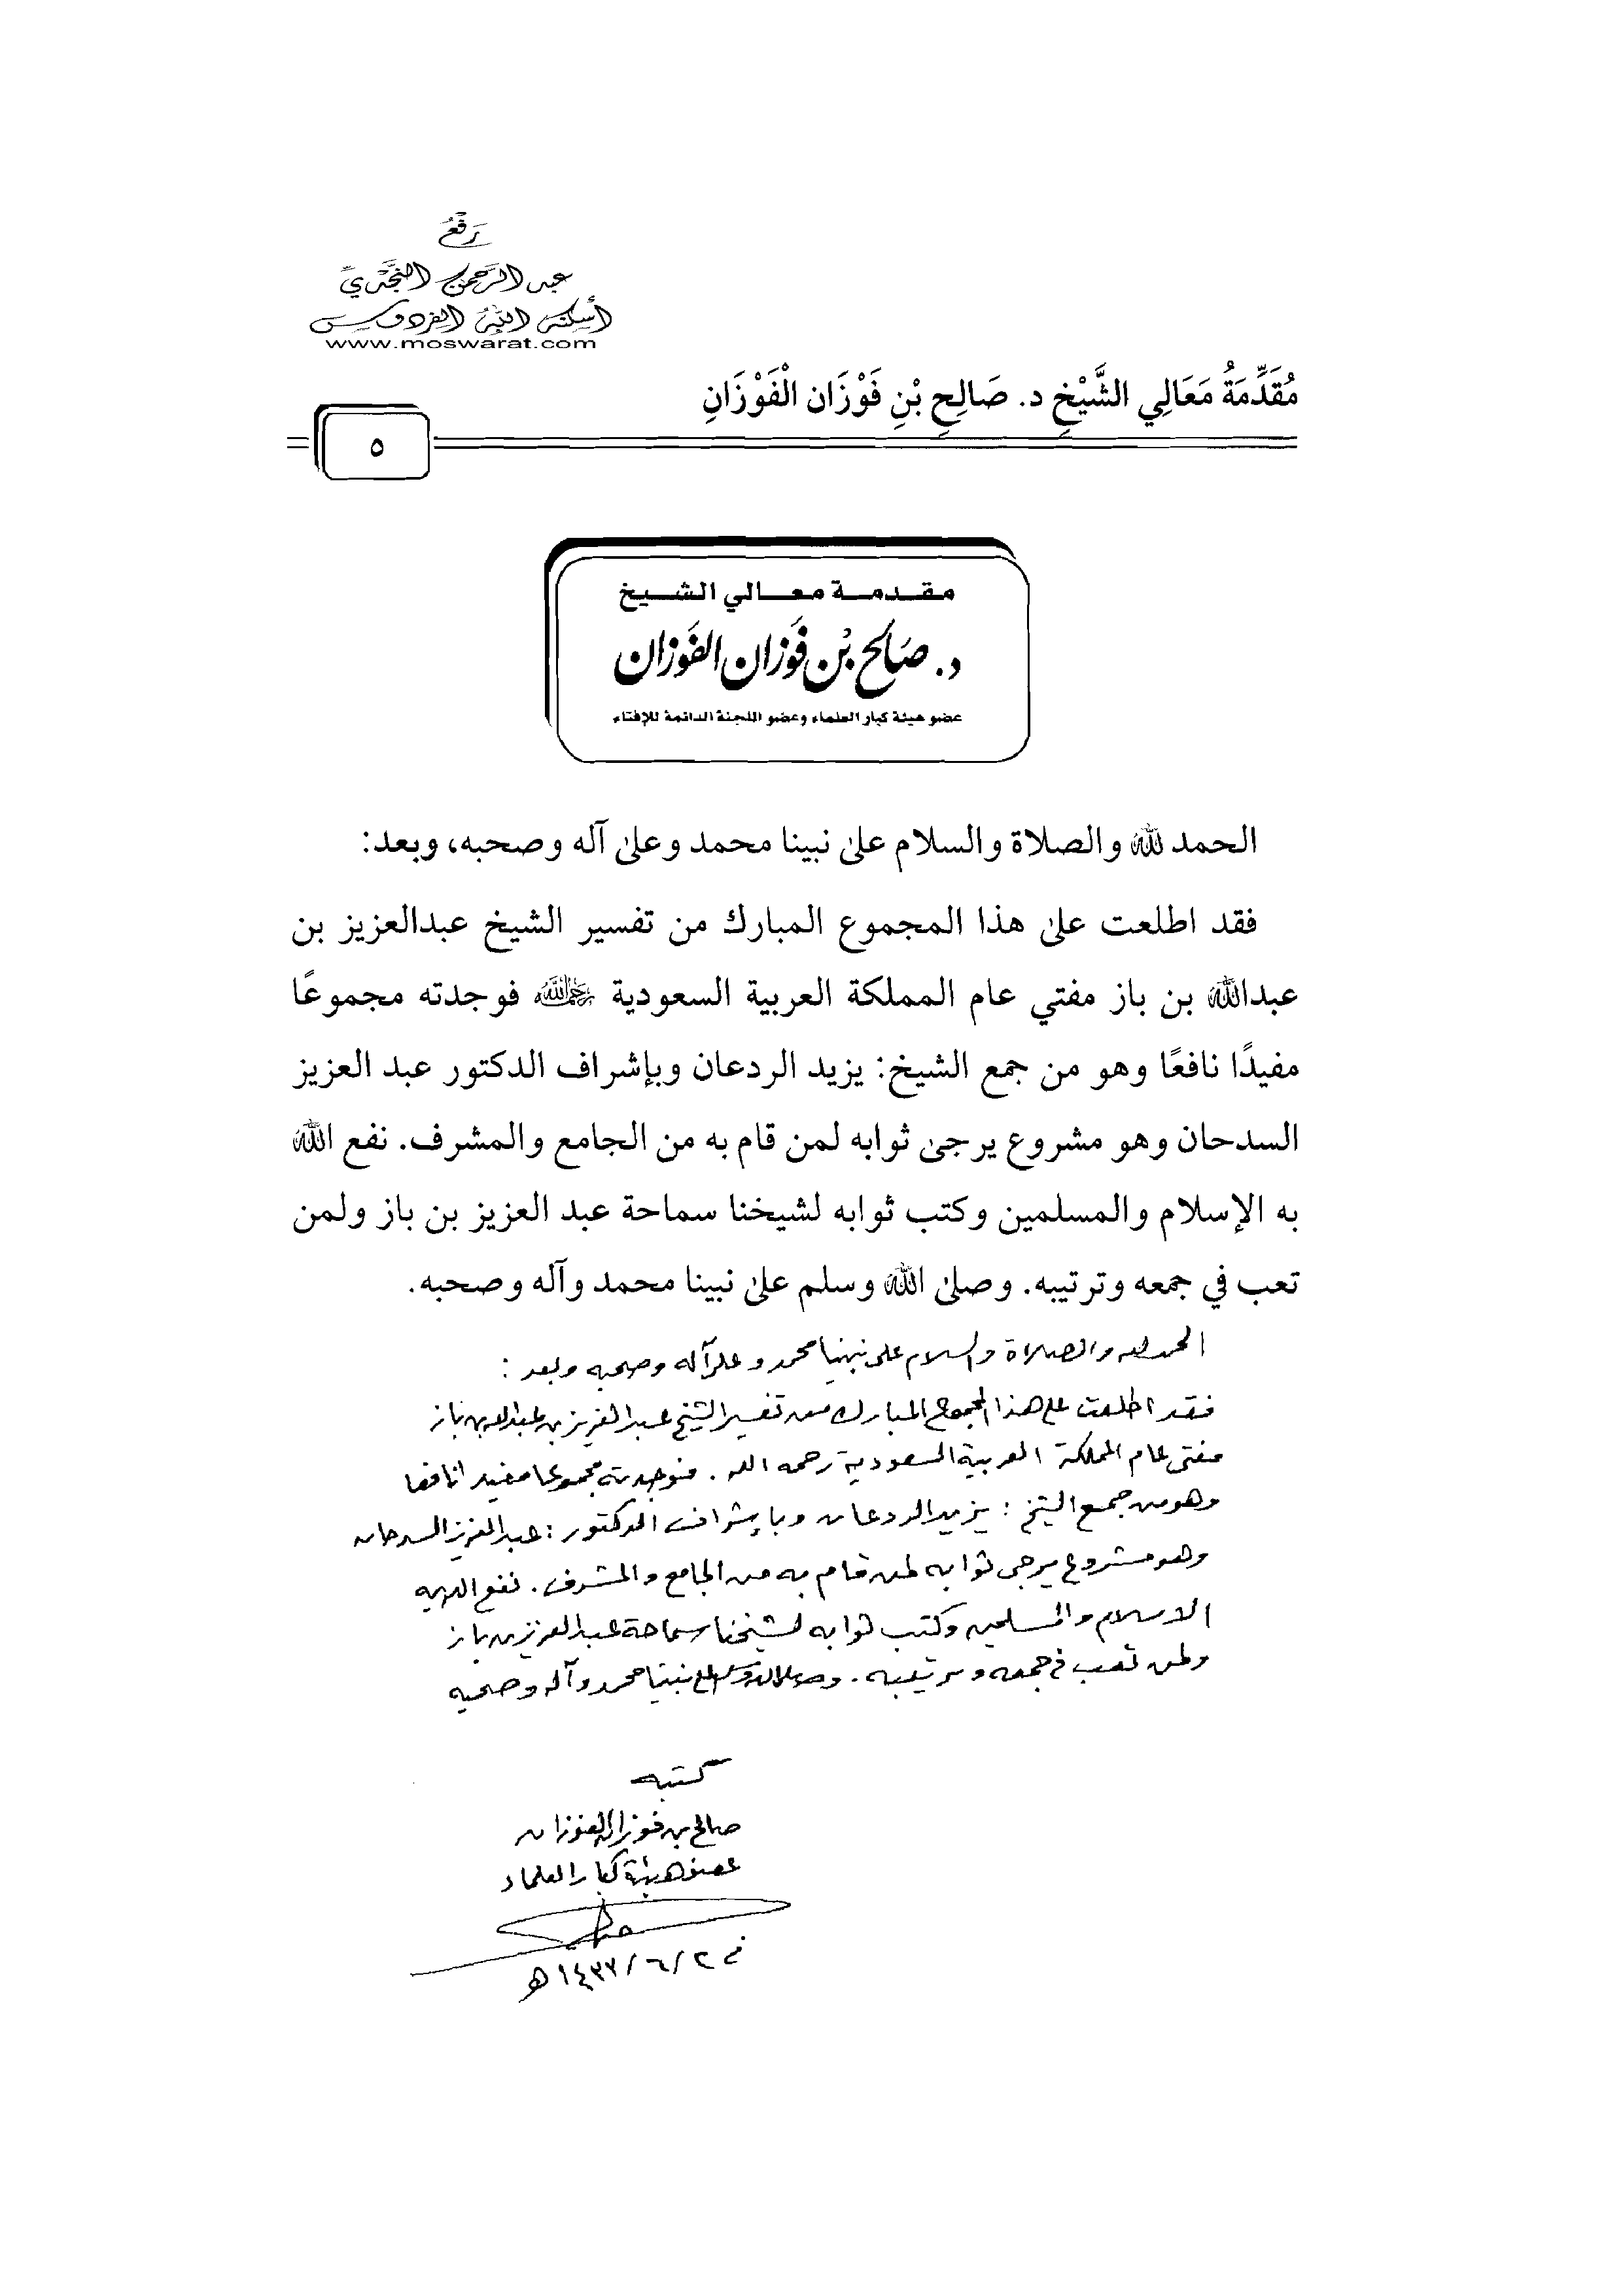 رَفْعُ
عبد الرَّحمن النَّجْديّ
أسكنه الله الفردوس
www.moswarat.com
مُقَدِّمَةُ مَعَالِي الشَّيْخِ د. صَالِحِ بْنِ فَوْزَان الْفَوْزَانِ
٥
مقدمة معالي الشيخ
د. صَالح بْن فَوَزان الفَوَزان
عضو هيئة كبار العلماء وعضو اللجنة الدائمة للإفتاء
الحمد لله والصلاة والسلام علىٰ نبينا محمد وعلىٰ آله وصحبه، وبعد:
فقد اطلعت علىٰ هذا المجموع المبارك من تفسير الشيخ عبدالعزيز بن
عبدالله بن باز مفتي عام المملكة العربية السعودية رحمه الله فوجدته مجموعًا
مفيدًا نافعًا وهو من جمع الشيخ: يزيد الردعان وبإشراف الدكتور عبد العزيز
السدحان وهو مشروع يرجىٰ ثوابه لمن قام به من الجامع والمشرف. نفع الله
به الإسلام والمسلمين وكتب ثوابه لشيخنا سماحة عبد العزيز بن باز ولمن
تعب في جمعه وترتيبه. وصلىٰ الله وسلم علىٰ نبينا محمد وآله وصحبه.
الحمد لله والصلاة والسلام على نبينا محمد وعلى آله وصحبه وبعد :
فقد اطلعت على هذا المجموع المبارك من تفسير الشيخ عبد العزيز بن عبدالله بن باز
مفتي عام المملكة العربية السعودية رحمه الله . فوجدته مجموعا مفيدا نافعا
وهو من جمع الشيخ : يزيد الردعان وبإشراف الدكتور : عبد العزيز السدحان
وهو مشروع يرجى ثوابه لمن قام به من الجامع والمشرف . نفع الله به
الاسلام والمسلمين وكتب ثوابه لشيخنا سماحة عبد العزيز بن باز
ولمن تعب في جمعه وترتيبه . وصلى الله وسلم على نبينا محمد وآله وصحبه
كتبه
صالح بن فوزان الفوزان
عضو هيئة كبار العلماء
في ٢/ ٦/ ١٤٣٣هـ